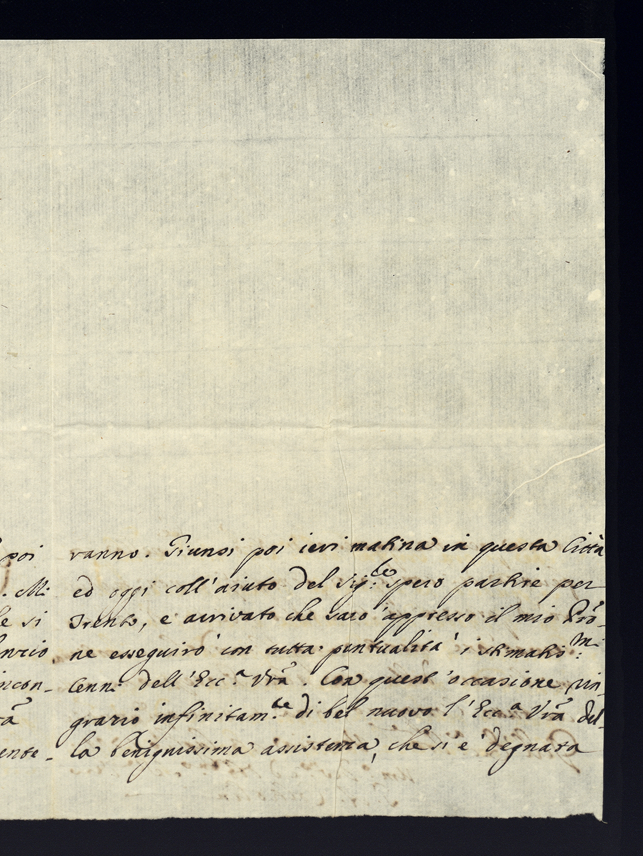 poi vanno. Giunsi poi ieri matina in questa Città
M: ed oggi coll'aiuto del Sig:re spero partire per
le si Trento, e arrivato che sarò appresso il mio Prõ-
ne esseguirò con tutta pontualità i stimatis:mi
ncon- Cenni dell'Ecc:a Vrã. Con quest'occasione rin-
ra grazio infinitam:te di bel nuovo l'Ecc:a Vrã del-
ente- la benignissima assistenza, che si è degnata